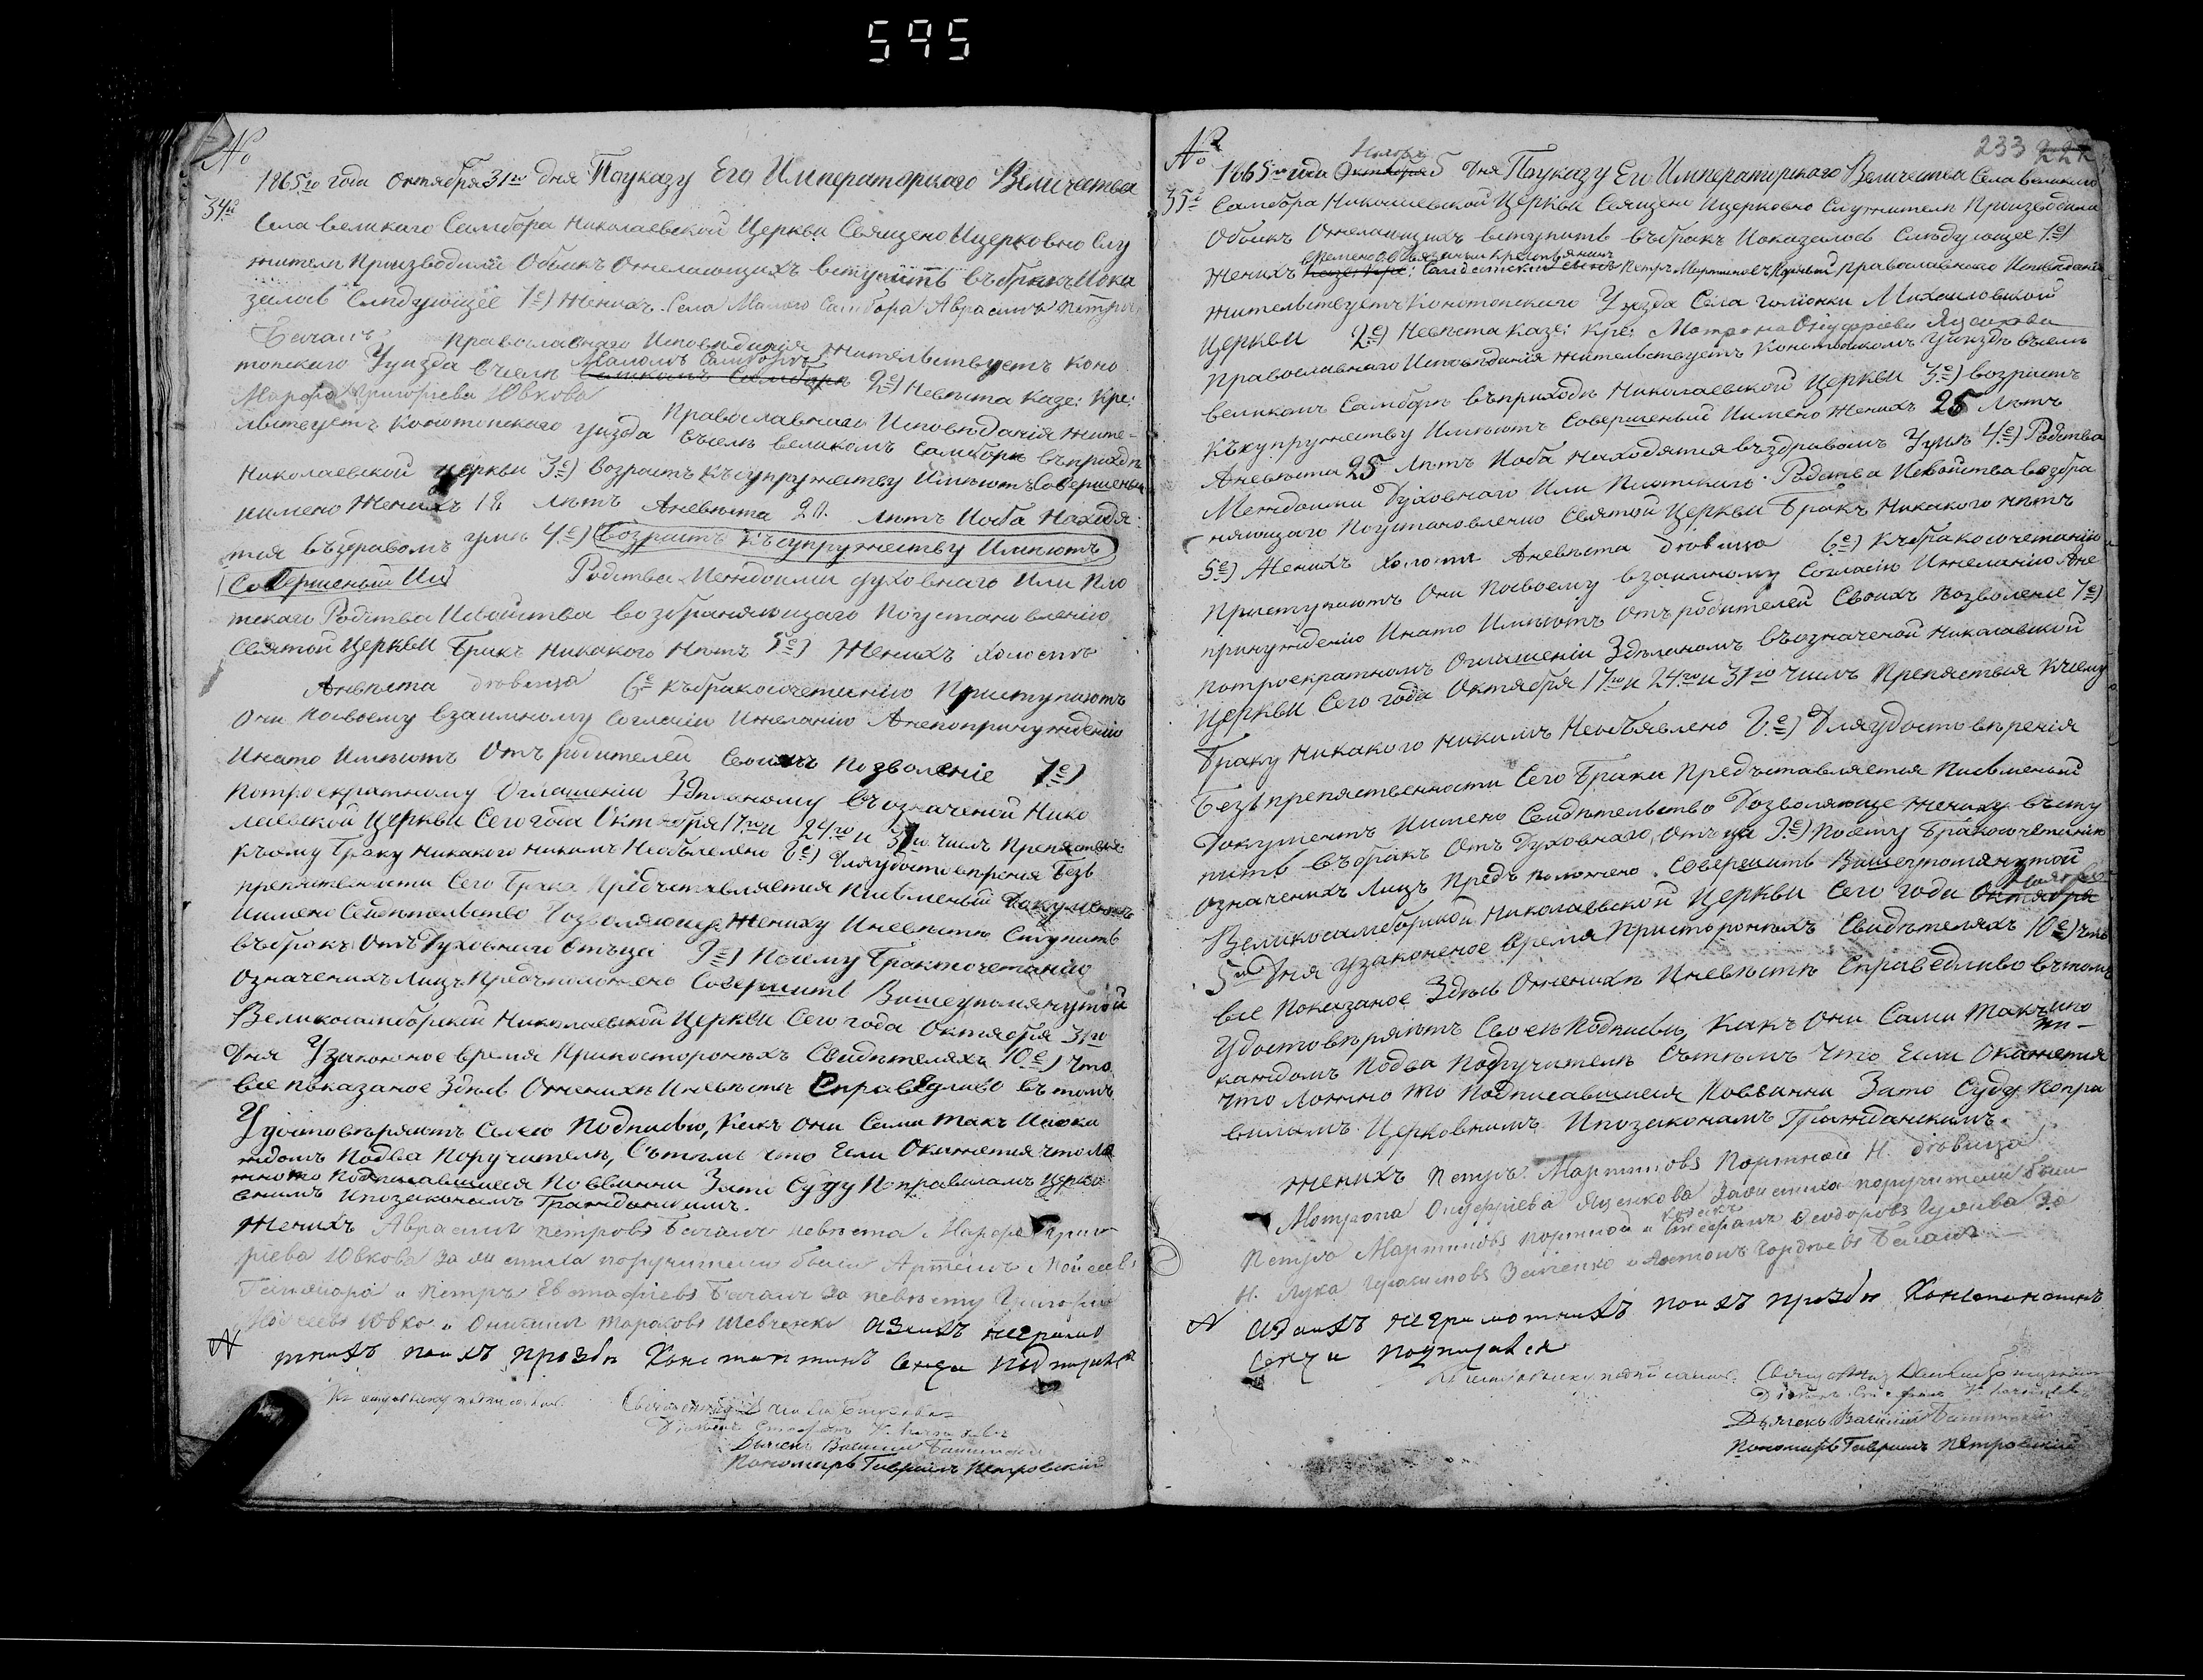 595
№
1865го года Октября 31го дня По указу Его Императорского Величества
34й
Села великаго Самбора Николаевской Церкви Священо Ицерковно Слу
жители Производили Обыскъ Ожелающихъ вступить въбракъ Иока
залось Слѣдующее 1е) Женихъ Села Малого Самбора Аврамъ Петровъ
Бачамъ Православнаго Исповѣданія жительствуетъ Коно
топскаго Уизда Въселѣ Маломъ Самборѣ великомъ Самборѣ 2е) Невѣста Казе: Кре:
Марфа Григоріева Ювкова Православнаго Исповѣданія жите-
льствуетъ Конотопскаго уизда Въселѣ Великомъ Самборѣ въприходѣ
Николаевской церкви 3е) Возрастъ Ксупружеству Имѣютъ Совершеный
Иимено Женихъ 18 лѣтъ Аневѣста 20 лѣтъ Иоба Находя:
тся въздравомъ умѣ 4е) Возрастъ Ксупружеству Имѣютъ
Совершеный Ии Родства Междоими духовнаго Или Пло
тскаго Родства Исвойства возбраняющаго Поустановленію
Святой Церкви Бракъ Никакого Нѣтъ 5е) Женихъ холостъ
Аневѣста дѣвица 6е Къбракосочетанію Приступаютъ
Они Посвоему взаимному Согласію Ижеланію Анепопринуждению
Инато Имѣютъ Отъ родителей Своихъ Позволеніе 7е)
Потроекратному Оглашеніи Здѣланому въозначеной Нико
лаевской Церкви Сегогода Октября 17го и 24го и 31го числъ Препяствия
Къему Браку Никакого никимъ Необявлено 8е) Дляудостовѣренія Безъ
препяственности Сего Брака Предъставляется Писменый Документъ
Иимено Свидѣтельство Дозволяющее Жениху Иневѣстѣ Ступить
въбракъ Отъ Духовнаго Отъца 9е) Посему Бракосочетанію
Означенихъ Лицъ Предъположено Совершить Вышеупомянутой
Великосамборской Николаевской Церкви Сего года Октября 31го
Дня Узаконеное время Припостороныхъ Свидѣтеляхъ 10е) Что
все Показаное Здѣсь Оженихѣ Иневѣстѣ Справедливо въ томъ
Удостовѣряютъ Своею Подписью, Какъ Они Сами Такъ Ипока
ждомъ Подва Поручители, Сътѣмъ что Если Окажется что Ло
жно то Подписавшиеся Повинни Зато Суду Поправиламъ Церко
внимъ Ипозаконамъ Гражданскимъ.
Женихъ Аврамъ Петровъ Бачамъ невѣста Марфа Григо
ріева Ювкова За жениха поручители были Артемъ Мойсеевъ
и Петръ Евстафіевъ Бачамъ За невѣсту Григорій
Ювко и Онисимъ Тарасовъ Шевченко Азаихъ неграмо
тнихъ поихъ прозбѣ Константинъ подписался
Священникъ
Дьячекъ Василий
Пономарь Гавриилъ Петровский
233 222
№
1865го года Октября Ноября 5 дня Поуказу Его Императорского Величества Села великого
35й Самбора Николаевской Церкви Священо Ицерковно Служители Производили
Обыскъ Ожелающихъ вступить въбракъ Ипоказалось Слѣдующее 1е)
временообязаный крестьянинъ
Женихъ Казе: Кре: Петръ Мартиновъ Портной православнаго Исповѣдания
жительствуетъ Конотопскаго Уизда Села Голіонки Михаиловской
Церкви 2е) Невѣста Казе: Кре: Мотрона Онуфріева Яценкова
Православнаго Исповѣданія жительствуетъ Конотопскомъ Уиздѣ въселѣ
великомъ Самборѣ въприходѣ Николаевской Церкви 3е) Возрастъ
Ксупружеству Имѣютъ Совершеный Иимено Женихъ 25 Лѣтъ
Аневѣста 25 лѣтъ Иоба Находятся въздравомъ Умѣ 4е) Родства
Междоими Духовнаго Или Плотскаго Родства Исвойства возбра
няющаго Поустановленію Святой Церкви Бракъ Никакого нѣтъ
5е) Женихъ Холостъ Аневѣста дѣвица 6е) Къбракосочетанію
Приступаютъ Они Посвоему взаимному Согласію Ижеланію Ане
принуждению Инато Имѣютъ Отъ родителей Своихъ Позволеніе 7е)
Потроекратномъ Оглашеніи Здѣланомъ въозначеной Николаевской
Церкви Сего года Октября 17го и 24го и 31го числъ Препяствия Къему
Браку Никакого Никимъ Необъявлено 8е) Дляудостовѣренія
Безъпрепяственности Сего Брака Предъставляется Писменый
Документъ Иимено Свидѣтельство Дозволяющее Жениху въсту
пить въбракъ Отъ Духовнаго, Отъца 9е) Посему Бракосочетанію
Означенихъ Лицъ Предъположено Совершить Вышеупомянутой
Великосамборской Николаевской Церкви Сего года Октября Ноября
5го Дня Узаконеное Время Присторонихъ Свидѣтеляхъ 10е) Что
все Показаное Здѣсь Оженихѣ Иневѣстѣ Справедливо въ томъ
Удостовѣряютъ Своею Подписью, Какъ Они Сами Такъ ипо
каждомъ Подва Поручитель Сътѣмъ Что Если Окажется
что Ложно то Подписавшиеся Повинни Зато Суду Попра
виламъ Церковнимъ Ипозаконамъ Гражданскимъ.
Женихъ Петръ Мартиновъ Портной Н. дѣвица
Мотрона Онуфріева Яценкова За жениха поручители были
Петро Мартиновъ портной и Стефанъ Феодоровъ Гулява За
Н. Лука Герасимовъ Заиченко и Антонъ Гордѣевъ Бачамъ
Азаихъ неграмотнихъ поихъ прозбѣ Константинъ
подписался
Дьячекъ Василий
Пономарь Гавриилъ Петровский